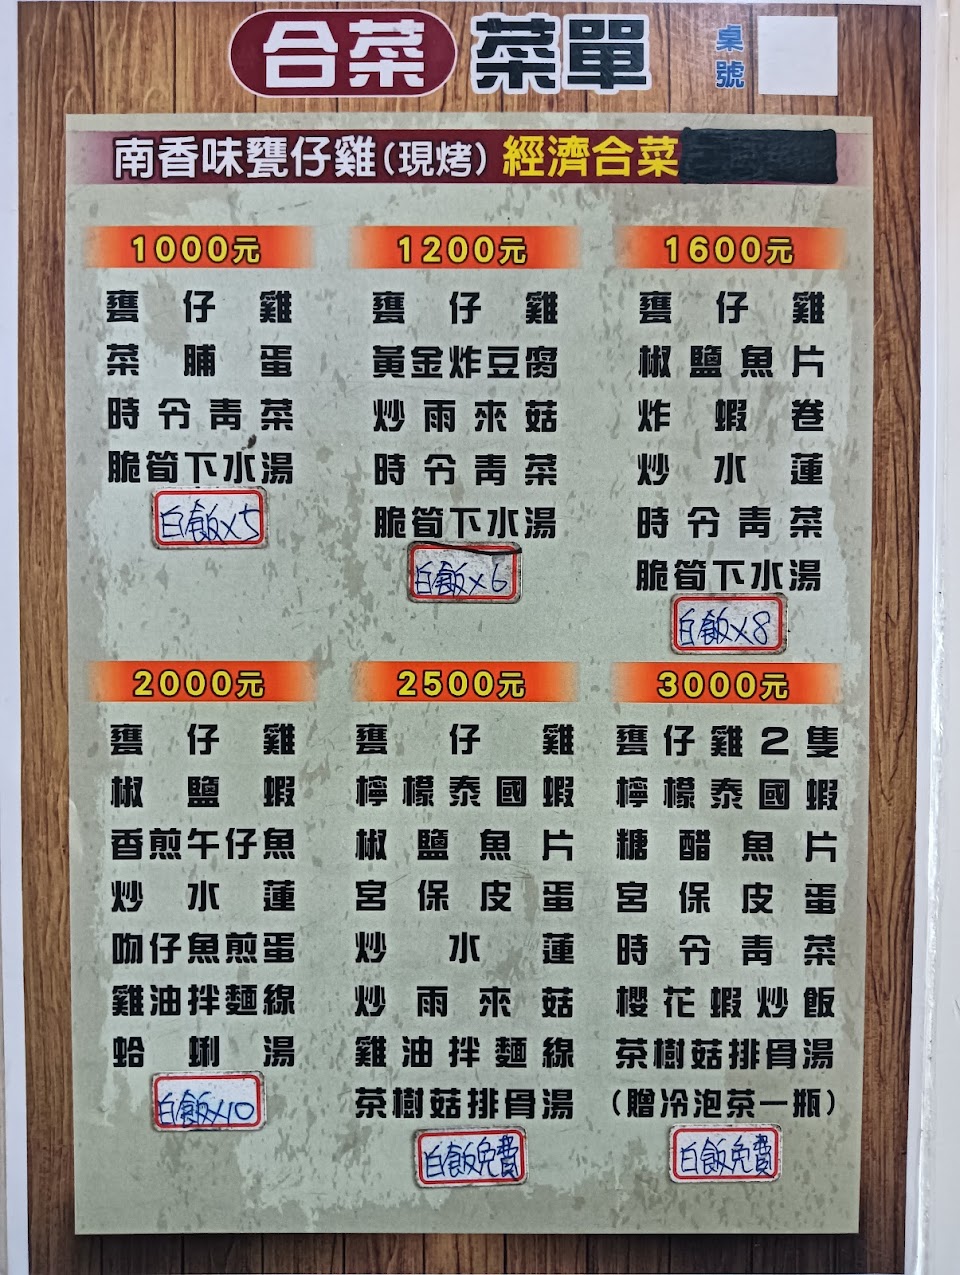 合菜 菜單
桌號
南香味甕仔雞(現烤) 經濟合菜
1000元
甕仔雞
菜脯蛋
時令青菜
脆筍下水湯
白飯x5
1200元
甕仔雞
黃金炸豆腐
炒雨來菇
時令青菜
脆筍下水湯
白飯x6
1600元
甕仔雞
椒鹽魚片
炸蝦卷
炒水蓮
時令青菜
脆筍下水湯
白飯x8
2000元
甕仔雞
椒鹽蝦
香煎午仔魚
炒水蓮
吻仔魚煎蛋
雞油拌麵線
蛤蜊湯
白飯x10
2500元
甕仔雞
檸檬泰國蝦
椒鹽魚片
宮保皮蛋
炒水蓮
炒雨來菇
雞油拌麵線
茶樹菇排骨湯
白飯免費
3000元
甕仔雞2隻
檸檬泰國蝦
糖醋魚片
宮保皮蛋
時令青菜
櫻花蝦炒飯
茶樹菇排骨湯
(贈冷泡茶一瓶)
白飯免費